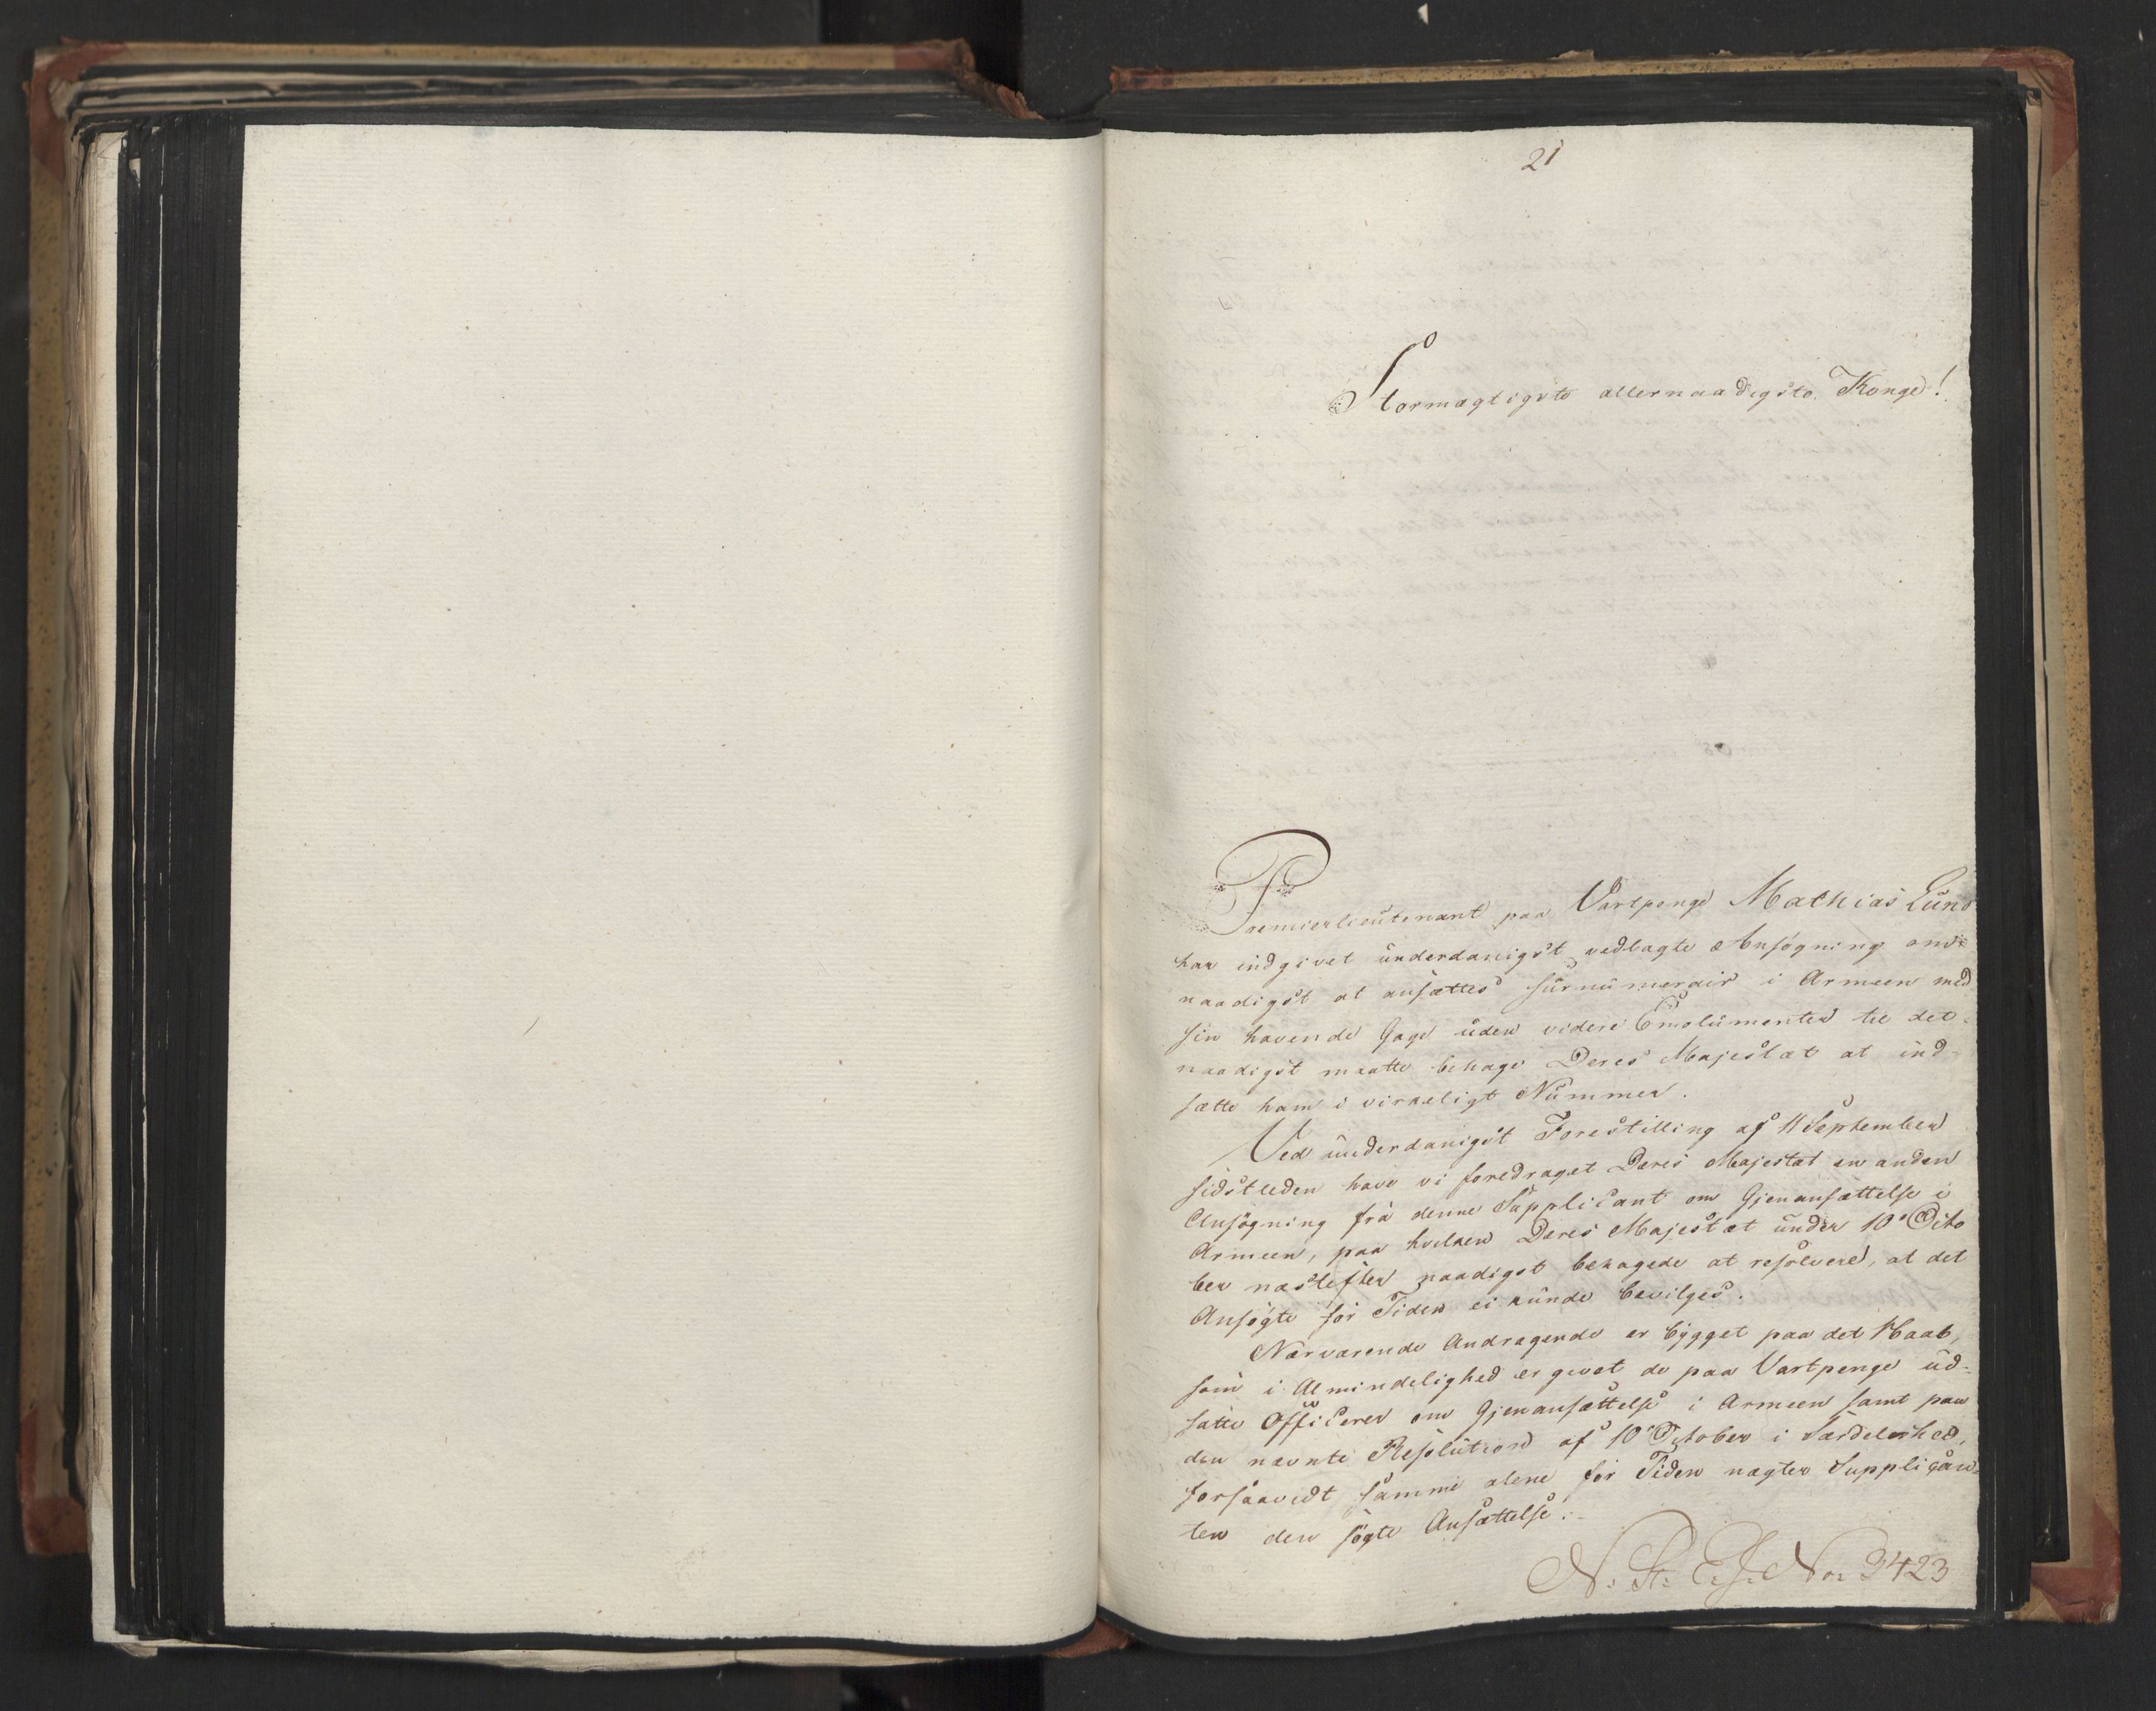 21
Stormægtigste allernaadigste Konge!
Premierlieutenant paa Vartpenge Mathias Lund
har indgivet underdanigst vedlagte Ansøgning om
naadigst at ansættes surnumerair i Armeen med
sin havende Gage uden videre Emolumenter til det
naadigst maatte behage Deres Majestæt at ind-
sætte ham i virkeligt Nummer.
Ved underdanigst Forestilling af 11 September
sidstleden have vi foredraget Deres Majestæt en anden
Ansøgning fra denne Supplicant om Gjenansættelse i
Armeen, paa hvilken Deres Majestæt under 10de Octo
ber næstefter naadigst behagede at resolvere, at det
Ansøgte for Tiden ei kunde bevilges.
Nærværende Andragende er bygget paa det Haab,
som i Almindelighed er givet de paa Vartpenge ud-
satte Officerer om Gjenansættelse i Armeen samt paa
den nævnte Resolution af 10de October i Særdeleshed,
forsaavidt samme alene for Tiden nægter Supplican-
ten den søgte Ansættelse.
N: St: E: J: No: 3423